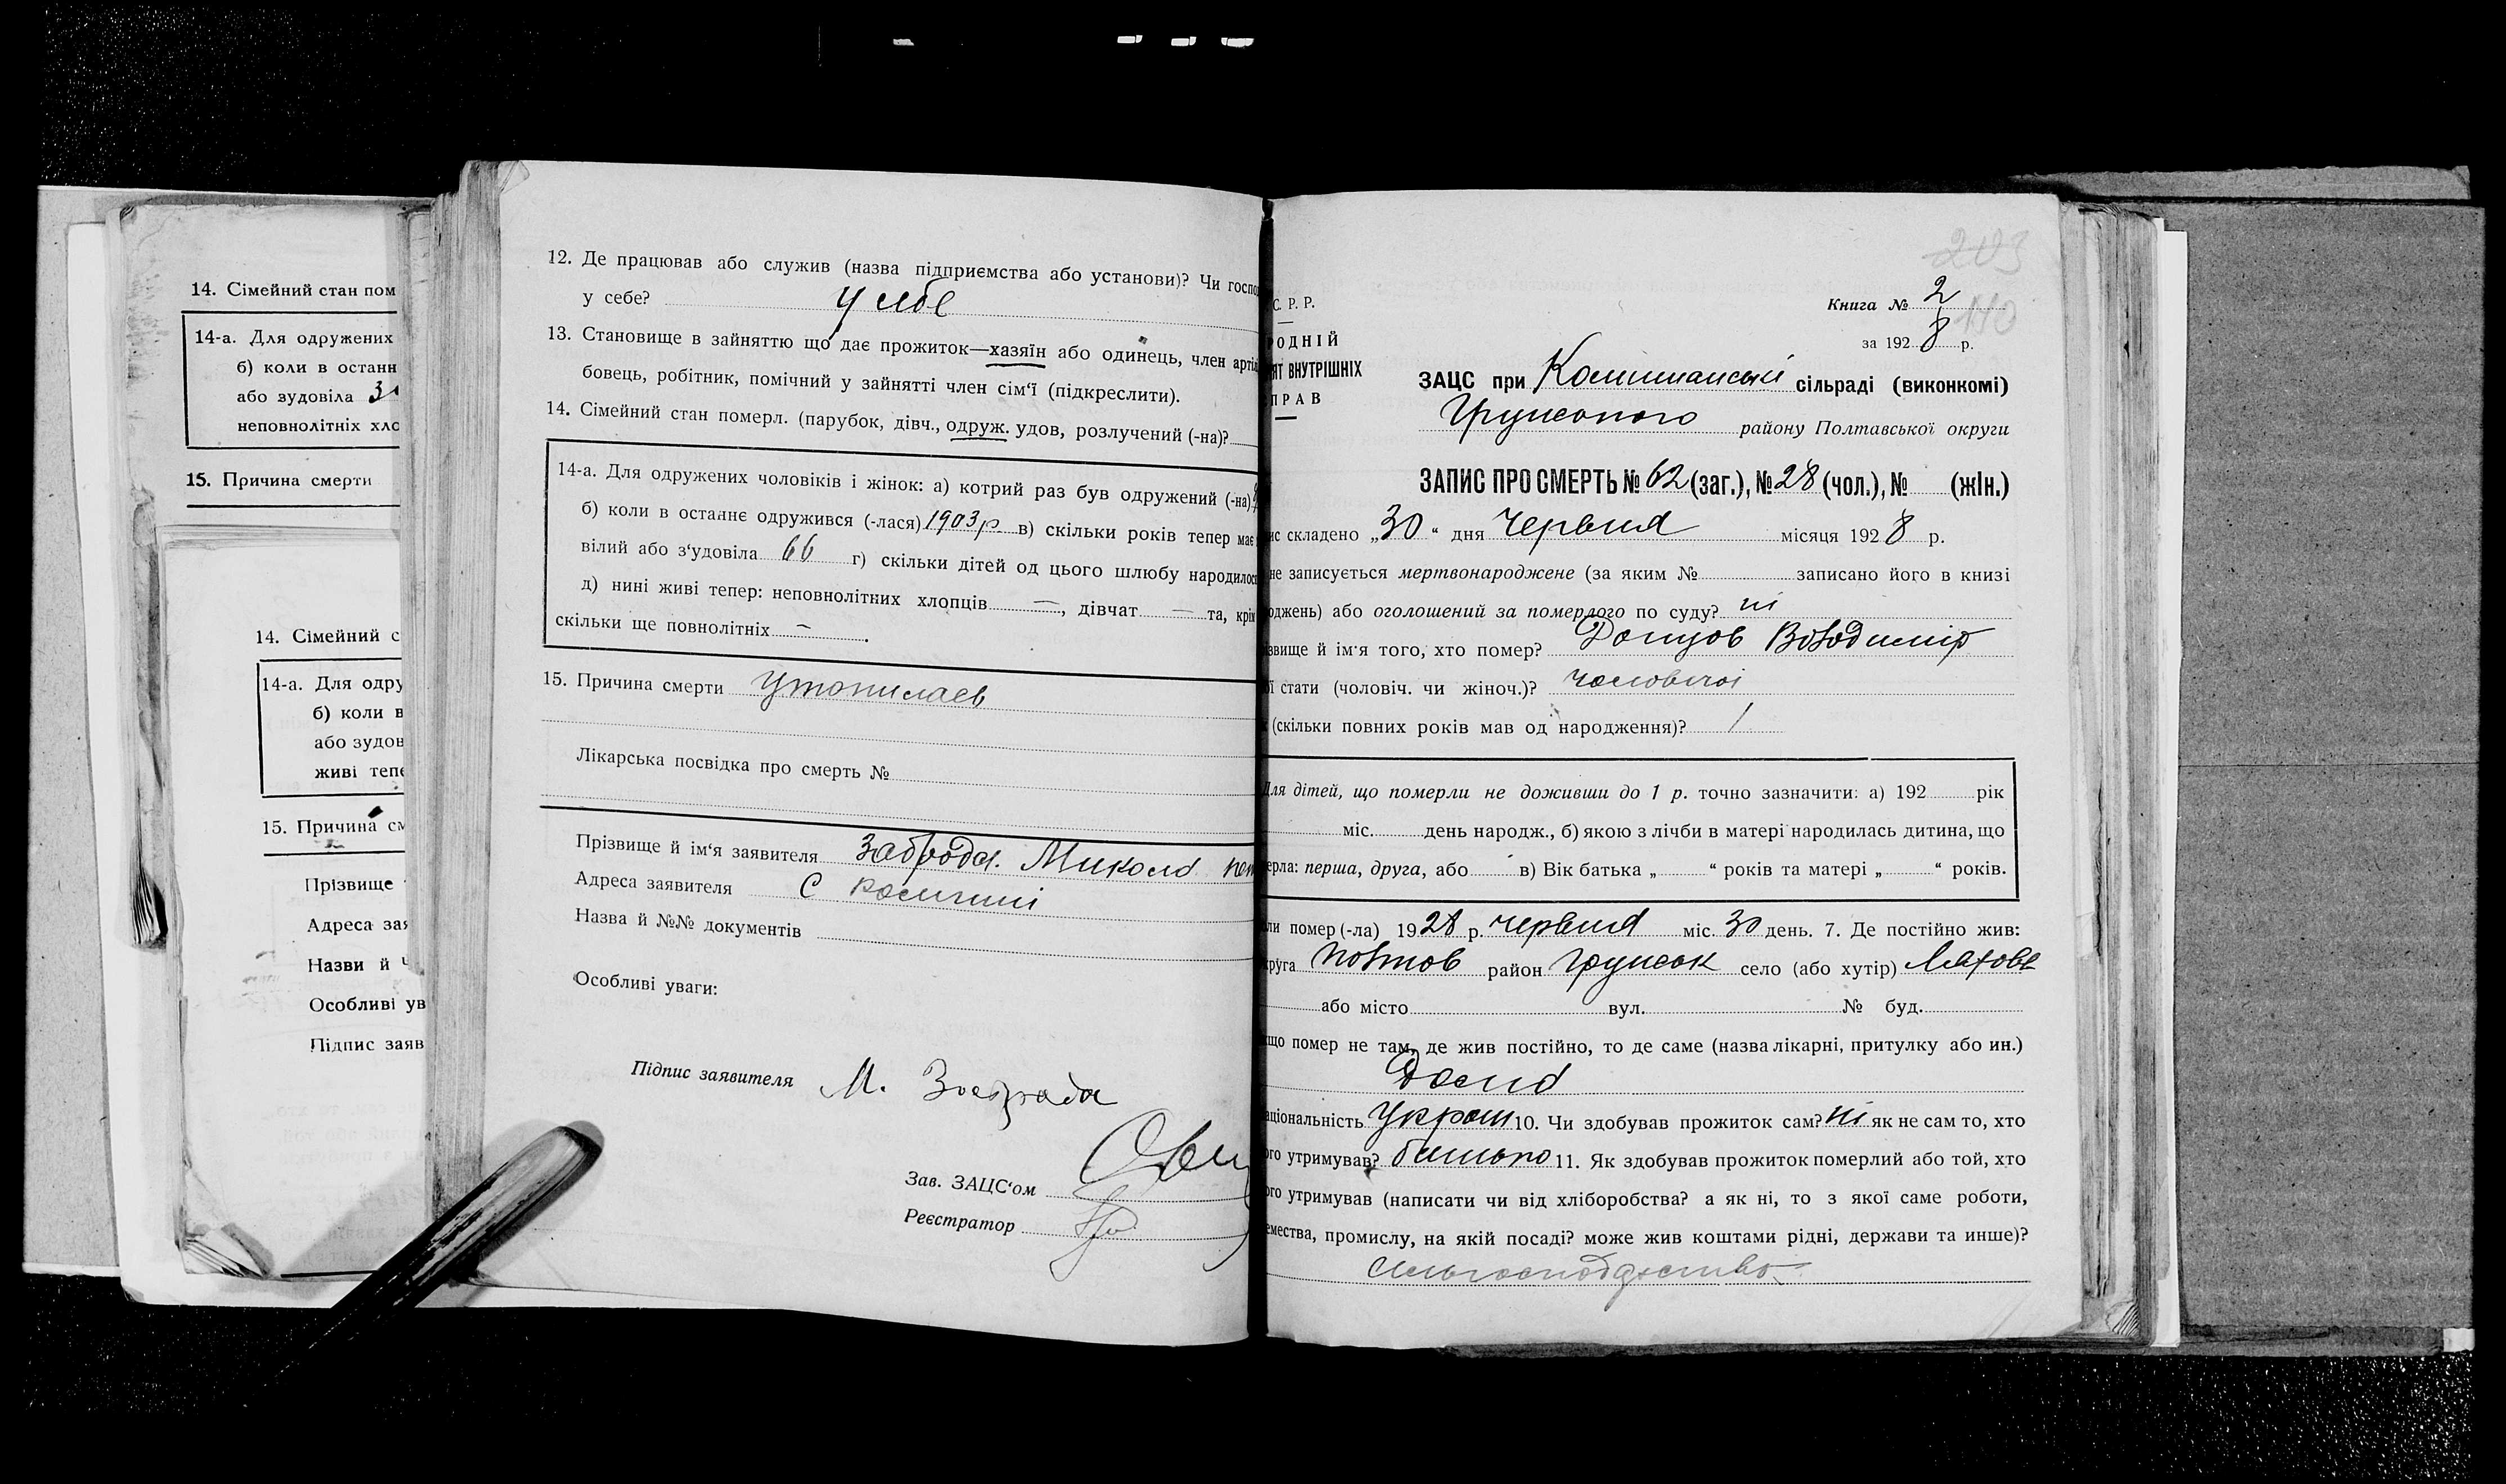 14. Сімейний стан пом
14-а. Для одружених
б) коли в останн
або зудовіла
неповнолітніх хло
15. Причина смерти
14. Сімейний с
14-а. Для одру
б) коли в
або зудов
живі тепе
15. Причина см
Прізвище
Адреса зая
Назви й
Особливі ув
Підпис заяв
12. Де працював або служив (назва підприємства або установи)? Чи госпо
у себе? у себе
13. Становище в зайняттю що дає прожиток—хазяїн або одинець, член артіл
бовець, робітник, помічний у зайнятті член сім'ї (підкреслити).
14. Сімейний стан померл. (парубок, дівч., одруж. удов, розлучений (-на)?
14-а. Для одружених чоловіків і жінок: а) котрий раз був одружений (-на)
б) коли в останнє одружився (-лася) 1903 р в) скільки років тепер має
вілий або з'удовіла 66 г) скільки дітей од цього шлюбу народилос
д) нині живі тепер: неповнолітних хлопців —, дівчат — та, крім
скільки ще повнолітніх —.
15. Причина смерти Утопилась
Лікарська посвідка про смерть №
Прізвище й ім'я заявителя Заброда Микола
Адреса заявителя с
Назва й №№ документів
Особливі уваги:
Підпис заявителя М. Заброда
Зав. ЗАЦС'ом
Реєстратор
203
110
С. Р. Р.
РОДНІЙ
ЯТ ВНУТРІШНІХ
ПРАВ
Книга № 2
за 1928 р.
ЗАЦС при сільраді (виконкомі)
Грунського району Полтавської округи
ЗАПИС ПРО СМЕРТЬ № 62 (заг.), № 28 (чол.), № (жін.)
ис складено „30“ дня Червня місяця 1928 р.
не записується мертвонароджене (за яким № записано його в книзі
оджень) або оголошений за померлого по суду? ні
звище й ім'я того, хто помер? Донцов Володимір
ої стати (чоловіч. чи жіноч.)? чоловічої
(скільки повних років мав од народження)? 1
Для дітей, що померли не доживши до 1 р. точно зазначити: а) 192 рік
міс. день народж., б) якою з лічби в матері народилась дитина, що
ерла: перша, друга, або в) Вік батька „ “ років та матері „ “ років.
ли помер (-ла) 1928 р. червня міс. 30 день. 7. Де постійно жив:
круга Полтов район Грунськ село (або хутір)
або місто вул. № буд.
кщо помер не там, де жив постійно, то де саме (назва лікарні, притулку або ин.)
Дома
аціональність Україн 10. Чи здобував прожиток сам? ні як не сам то, хто
ого утримував? батько 11. Як здобував прожиток померлий або той, хто
ого утримував (написати чи від хліборобства? а як ні, то з якої саме роботи,
емества, промислу, на якій посаді? може жив коштами рідні, держави та инше)?